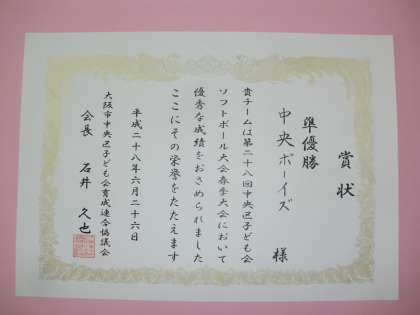 賞状
準優勝
中央ボーイズ 様
貴チームは第二十八回中央区子ども会
ソフトボール大会春季大会において
優秀な成績をおさめられました
ここにその栄誉をたたえます
平成二十八年六月二十六日
大阪市中央区子ども会育成連合協議会
会長 石井 久也